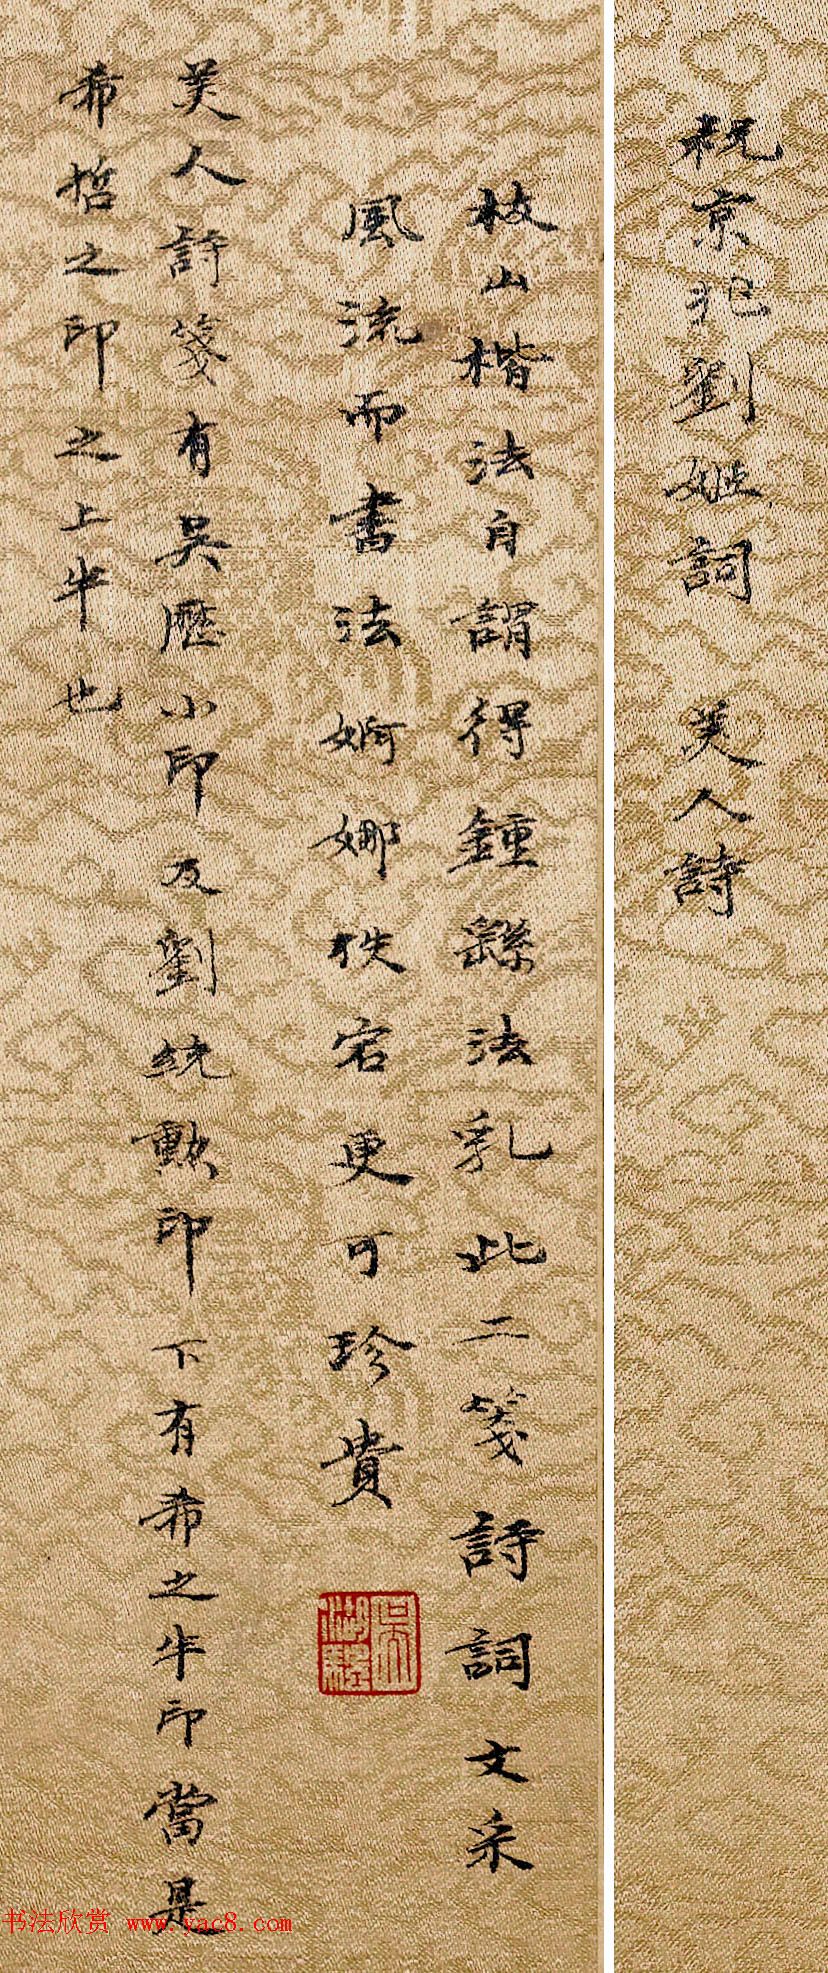 祝京兆劉姬詞　美人詩
枝山楷法自謂得鍾繇法乳此二箋詩詞文采
風流而書法婀娜佚宕更可珍貴
吳湖驊
美人詩箋有吳歷小印及劉統勳印下有希之半印當是
希哲之印之上半也
书法欣赏 www.yac8.com